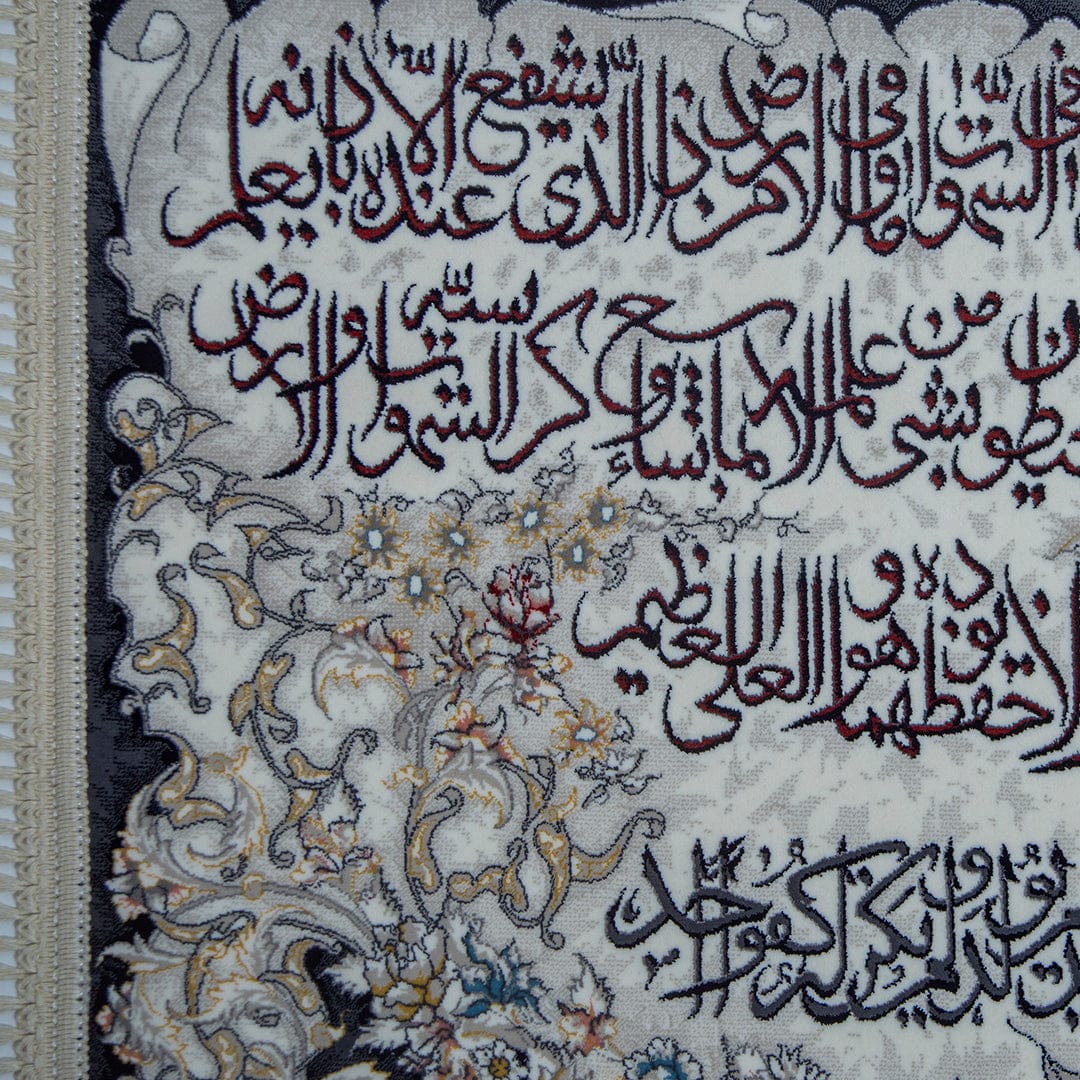 السموات وما فی الارض من ذا الذی یشفع عنده الا باذنه یعلم
یحیطون بشی من علمه الا بما شاء وسع کرسیه السموات والارض
ولا یؤده حفظهما وهو العلی العظیم
یولد ولم یکن له کفوا احد